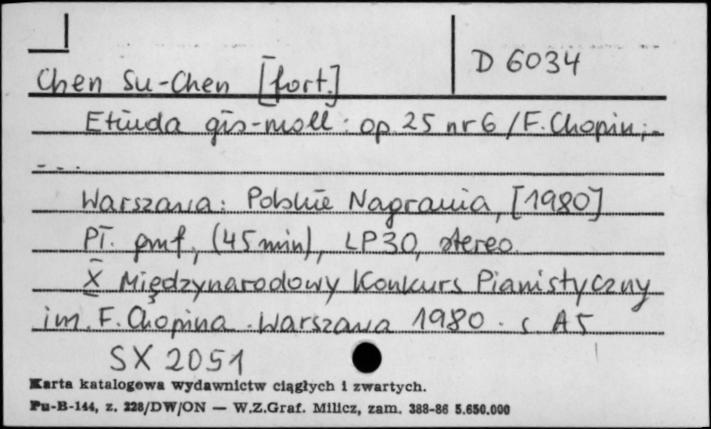 D 6034
Chen Su-Chen [fort.]
Etiuda gis-moll : op. 25 nr 6 / F. Chopin ; -
- ...
Warszawa : Polskie Nagrania, [1980]
Pł. gmf., (45 min), LP30, stereo.
X Międzynarodowy Konkurs Pianistyczny
im. F. Chopina . Warszawa 1980 . s A5
SX 2051
Karta katalogowa wydawnictw ciągłych i zwartych.
Pu-B-144, z. 228/DW/ON — W.Z.Graf. Milicz, zam. 388-86 5.650.000